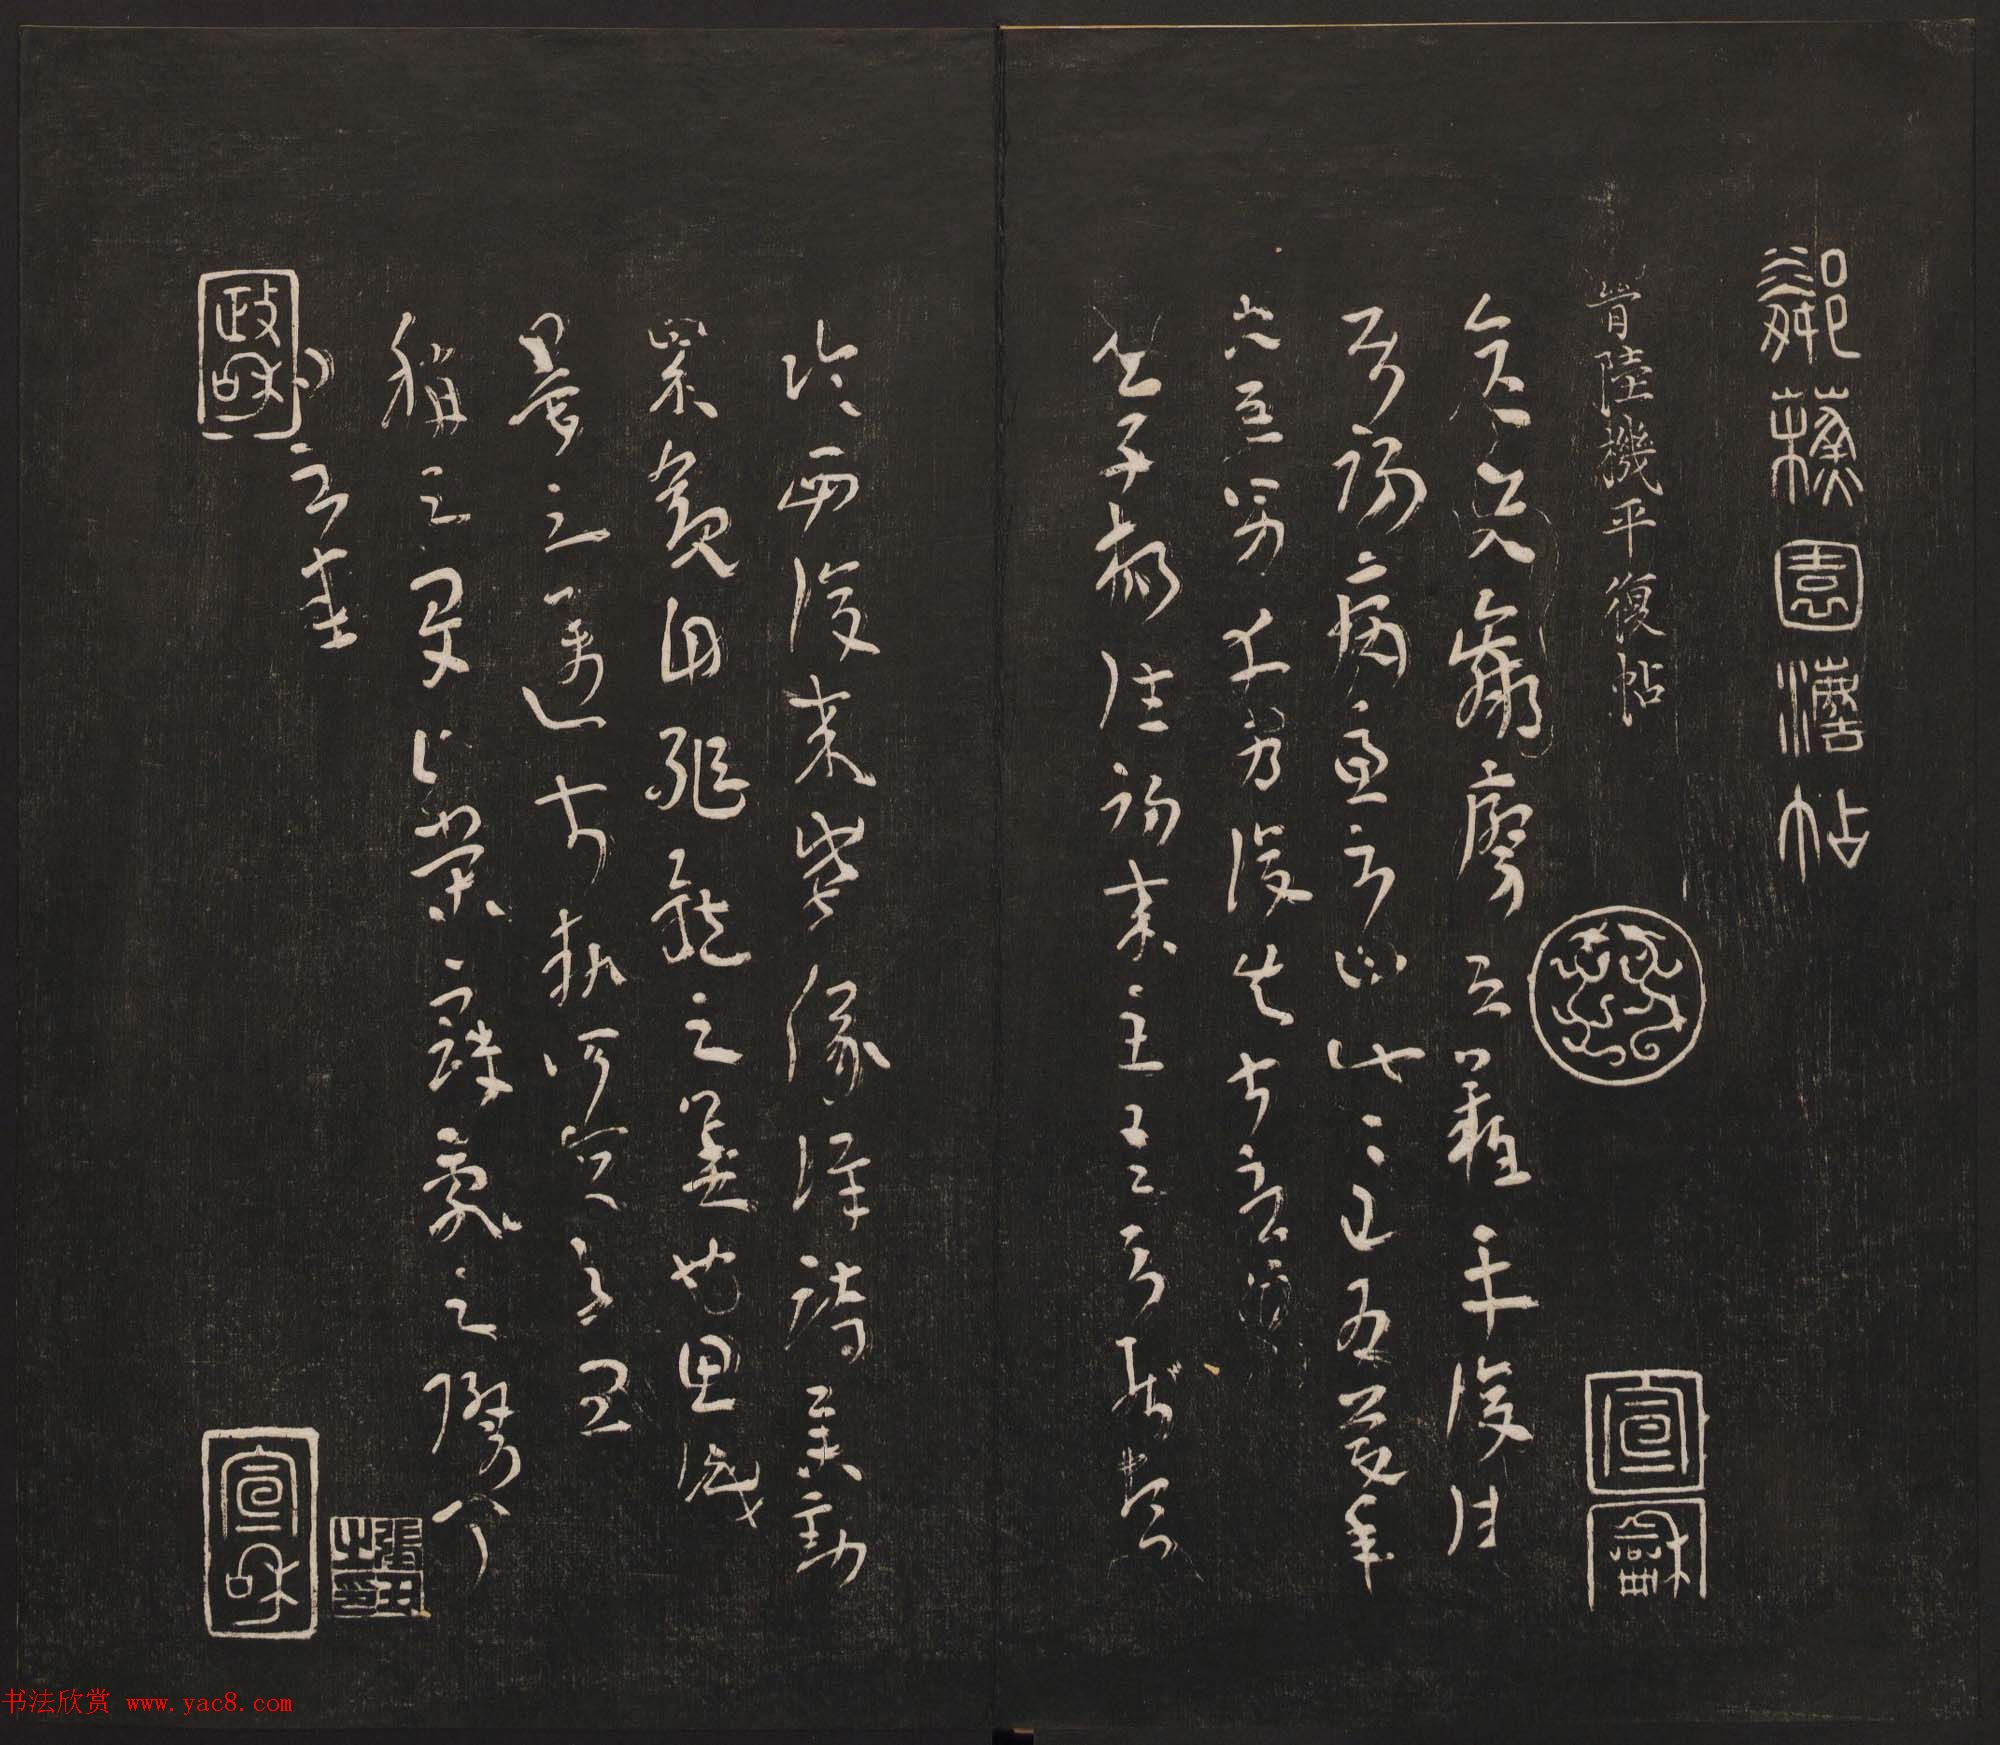 鄰蘇園灋帖
晉陸機平復帖
彥先羸瘵恐難平復往
屬初病慮不止此此已為慶承
使唯男幸為復失前憂耳
子楊往初來主吾不能盡
臨西復來威儀詳跱舉動
成觀自軀體之美也思識
量之邁前執所恒有宜
稱之夏榮寇亂之際聞
問不悉
宣龢
政和
宣和
張丑之印
书法欣赏 www.yac8.com